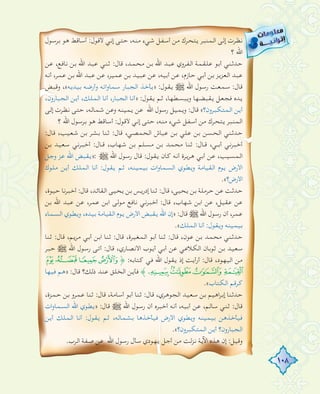 معلومات إثرائية
نظرت إلى المنبر يتحرك من أسفل شيء منه، حتى إني لأقول: أساقط هو برسول
الله ؟
حدثني أبو علقمة الفروي عبد الله بن محمد، قال: ثني عبد الله بن نافع، عن
عبد العزيز بن أبي حازم، عن أبيه، عن عبيد بن عمير، عن عبد الله بن عمر، أنه
قال: سمعت رسول الله ﷺ يقول: «يأخذ الجبار سماواته وأرضه بيديه»، وقبض
يده فجعل يقبضها ويبسطها، ثم يقول: «أنا الجبار، أنا الملك، أين الجبارون،
أين المتكبرون؟» قال: ويميل رسول الله عن يمينه وعن شماله، حتى نظرت إلى
المنبر يتحرك من أسفل شيء منه، حتى إني لأقول: أساقط هو برسول الله ﷺ ؟
حدثني الحسن بن علي بن عياش الحمصي، قال: ثنا بشر بن شعيب، قال:
أخبرني أبي، قال: ثنا محمد بن مسلم بن شهاب، قال: أخبرني سعيد بن
المسيب، عن أبي هريرة أنه كان يقول: قال رسول الله ﷺ: «يقبض الله عز وجل
الأرض يوم القيامة ويطوي السماوات بيمينه، ثم يقول: أنا الملك أين ملوك
الأرض؟».
حدثت عن حرملة بن يحيى، قال: ثنا إدريس بن يحيى القائد، قال: أخبرنا حيوة،
عن عقيل، عن ابن شهاب، قال: أخبرني نافع مولى ابن عمر، عن عبد الله بن
عمر، أن رسول الله ﷺ قال: «إن الله يقبض الأرض يوم القيامة بيده، ويطوي السماء
بيمينه ويقول: أنا الملك».
حدثني محمد بن عون، قال: ثنا أبو المغيرة، قال: ثنا ابن أبي مريم، قال: ثنا
سعيد بن ثوبان الكلاعي عن أبي أيوب الأنصاري، قال: أتى رسول الله ﷺ حبر
من اليهود، قال: أرأيت إذ يقول الله في كتابه: ﴿ وَٱلْأَرْضُ جَمِيعًا قَبْضَتُهُۥ يَوْمَ
ٱلْقِيَٰمَةِ وَٱلسَّمَٰوَٰتُ مَطْوِيَّٰتٌۢ بِيَمِينِهِۦ ﴾، فأين الخلق عند ذلك؟ قال: «هم فيها
كرقم الكتاب».
حدثنا إبراهيم بن سعيد الجوهري، قال: ثنا أبو أسامة، قال: ثنا عمرو بن حمزة،
قال: ثني سالم، عن أبيه، أنه أخبره أن رسول الله ﷺ قال: «يطوي الله السماوات
فيأخذهن بيمينه ويطوي الأرض فيأخذها بشماله، ثم يقول: أنا الملك أين
الجبارون؟ أين المتكبرون؟».
وقيل: إن هذه الآية نزلت من أجل يهودي سأل رسول الله عن صفة الرب.
١٠٨